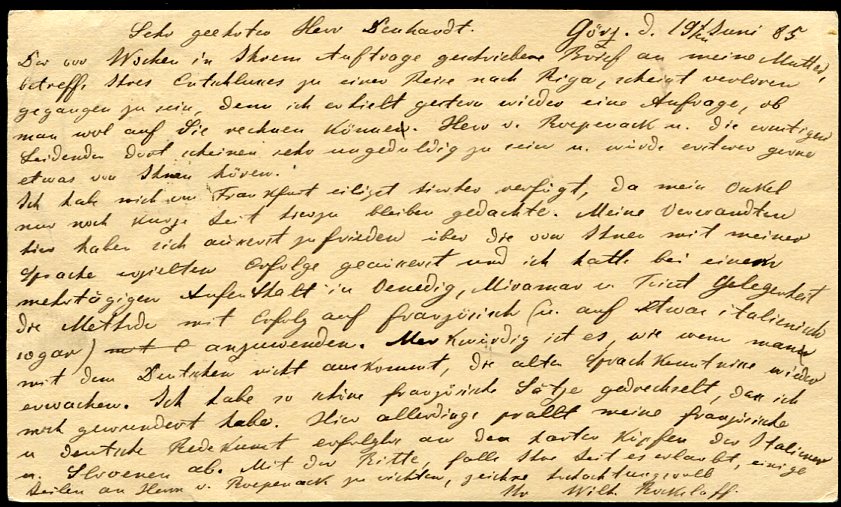 Sehr geehrter Herr Denhardt. Görz. d. 19ten Juni 85
Der vor Wochen in Ihrem Auftrage geschriebene Brief an meine Mutter,
betreffs Ihres Entschlusses zu einer Reise nach Riga, scheint verloren
gegangen zu sein, denn ich erhielt gestern wieder eine Anfrage, ob
man wol auf Sie rechnen könne. Herr v. Roepenack u. die
Leidenden dort scheinen sehr ungeduldig zu sein u. würde ersterer gerne
etwas von Ihnen hören.
Ich habe mich von Frankfurt eiligst hierher verfügt, da mein Onkel
nur noch kurze Zeit hier zu bleiben gedachte. Meine Verwandten
hier haben sich äusserst zufrieden über die von Ihnen mit meiner
Sprache erzielten Erfolge geäussert und ich hatte bei einem
mehrtägigen Aufenthalt in Venedig, Miramar u. Triest Gelegenheit
die Methode mit Erfolg auf französisch (u. auf etwas italienisch
sogar) anzuwenden. Merkwürdig ist es, wie wenn man
mit dem Deutschen nicht auskommt, die alten Sprachkenntnisse wieder
erwachen. Ich habe so schöne französische Sätze gedrechselt, dass ich
mich gewundert habe. Hier allerdings prallt meine französische
u deutsche Redekunst erfolglos an den harten Köpfen der Italiener
u. Slovenen ab. Mit der Bitte, falls Ihre Zeit es erlaubt, einige
Zeilen an Herrn v. Roepenack zu richten, zeichne hochachtungsvoll
Ihr Wilh.